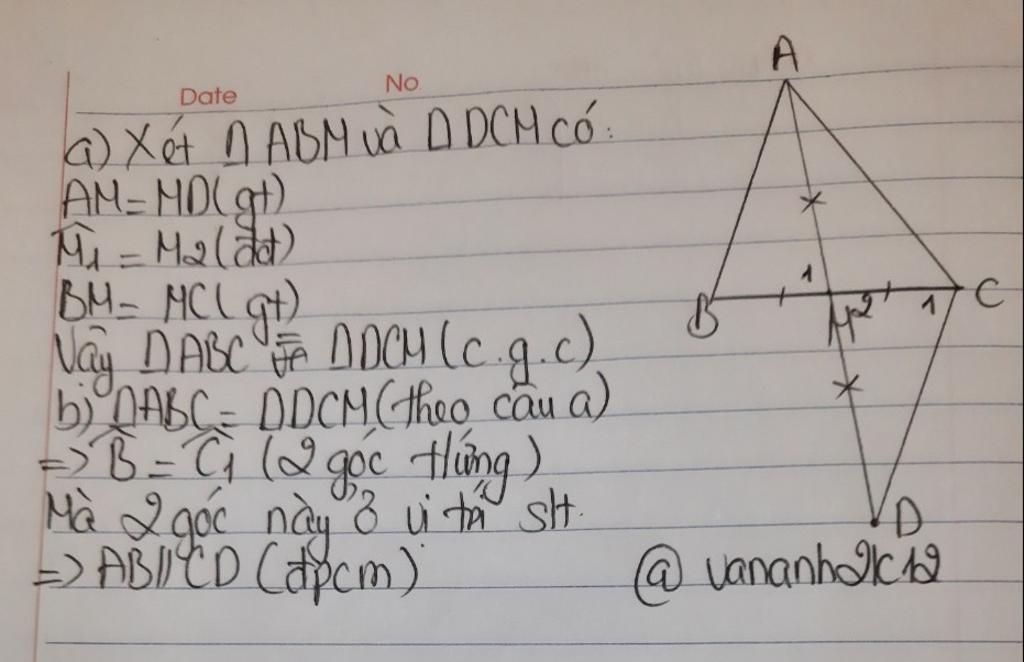 Date No
a) Xét Δ ABM và Δ DCM có:
AM = MD (gt)
M̂1 = M2 (đđ)
BM = MC (gt)
Vậy Δ ABC = Δ DCM (c.g.c)
b) Δ ABC = Δ DCM (theo câu a)
=> B̂ = Ĉ1 (2 góc tứng)
Mà 2 góc này ở vị trí slt.
=> AB // CD (đpcm)
@ vananh2k12
A
B
1
M
2
1
C
D